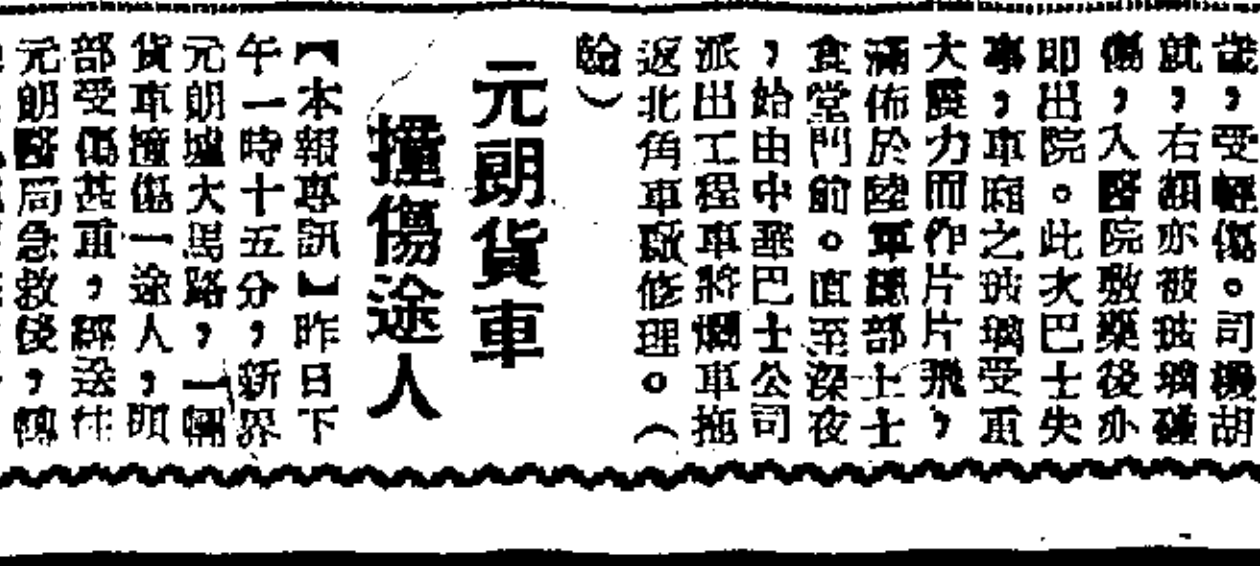 歲，受輕傷。司機胡
就，右額亦被玻璃碰
傷，入醫院敷藥後亦
即出院。此次巴士失
事，車廂之玻璃受重
大震力而作片片飛，
滿佈於陸軍總部士
食堂門前。直至深夜
，始由中巴士公司
派出工程車將爛車拖
返北角車廠修理。（
）
元朗貨車
撞傷途人
【本報專訊】昨日下
午一時十五分，新界
元朗墟大馬路，一輛
貨車撞傷一途人，頭
部受傷甚重，經送往
元朗醫局急救後，轉